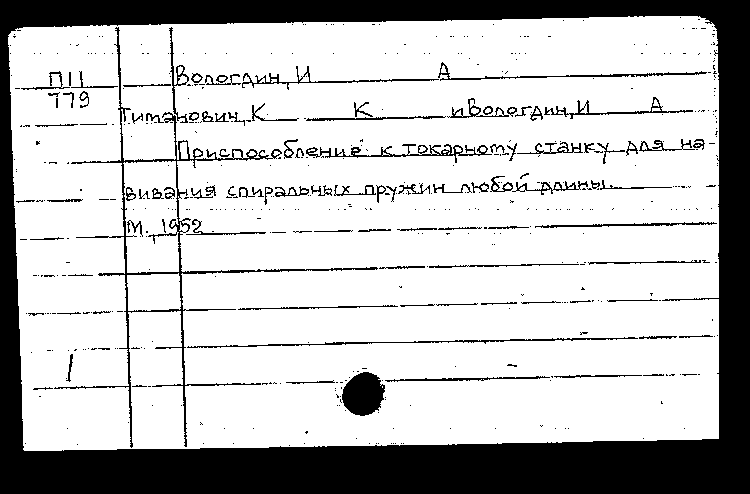 П11
779
Вологдин, И А
Тиманович, К К и Вологдин, И А
Приспособление к токарному станку для на-
вивания спиральных пружин любой длины.
М., 1952